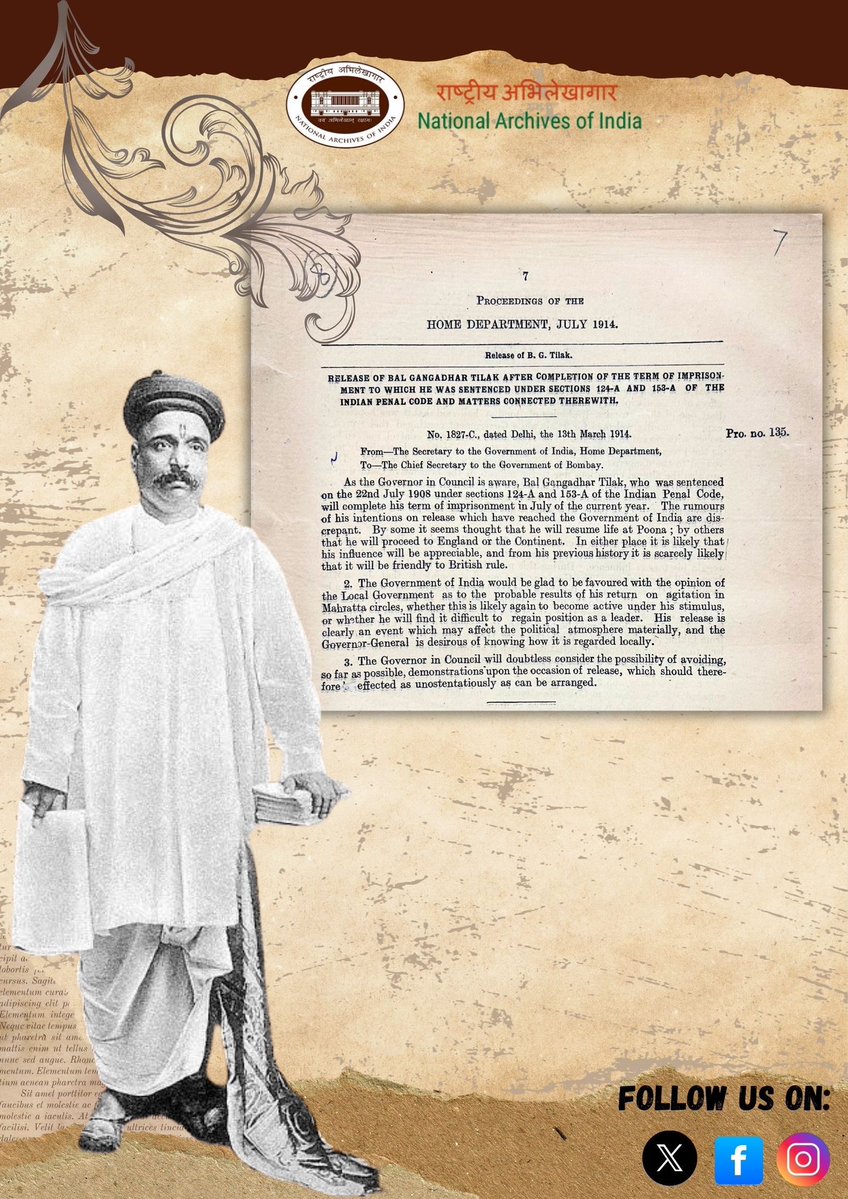 राष्ट्रीय अभिलेखागार
NATIONAL ARCHIVES OF INDIA
राष्ट्रीय अभिलेखागार
National Archives of India
7
8
7
PROCEEDINGS OF THE
HOME DEPARTMENT, JULY 1914.
Release of B. G. Tilak.
RELEASE OF BAL GANGADHAR TILAK AFTER COMPLETION OF THE TERM OF IMPRISON-
MENT TO WHICH HE WAS SENTENCED UNDER SECTIONS 124-A AND 153-A OF THE
INDIAN PENAL CODE AND MATTERS CONNECTED THEREWITH.
No. 1827-C., dated Delhi, the 13th March 1914.
Pro. no. 135.
From—The Secretary to the Government of India, Home Department,
To—The Chief Secretary to the Government of Bombay.
As the Governor in Council is aware, Bal Gangadhar Tilak, who was sentenced
on the 22nd July 1908 under sections 124-A and 153-A of the Indian Penal Code,
will complete his term of imprisonment in July of the current year. The rumours
of his intentions on release which have reached the Government of India are dis-
crepant. By some it seems thought that he will resume life at Poona; by others
that he will proceed to England or the Continent. In either place it is likely that
his influence will be appreciable, and from his previous history it is scarcely likely
that it will be friendly to British rule.
2. The Government of India would be glad to be favoured with the opinion of
the Local Government as to the probable results of his return on agitation in
Mahratta circles, whether this is likely again to become active under his stimulus,
or whether he will find it difficult to regain position as a leader. His release is
clearly an event which may affect the political atmosphere materially, and the
Governor-General is desirous of knowing how it is regarded locally.
3. The Governor in Council will doubtless consider the possibility of avoiding,
so far as possible, demonstrations upon the occasion of release, which should there-
fore effected as unostentatiously as can be arranged.
cursus. Sagit
elementum curab
adipiscing elit p
Elementum integer
Neque vitae tempus
ut pharetra sit am
mattis enim ut tellus
nunc sed augue. Rhon
mentum. Elementum tem
tium aenean pharetra ma
Sit amet porttitor eg
faucibus et molestie ac f
molestie a iaculis. At
facilisi. Velit
ultrices tincid
FOLLOW US ON: